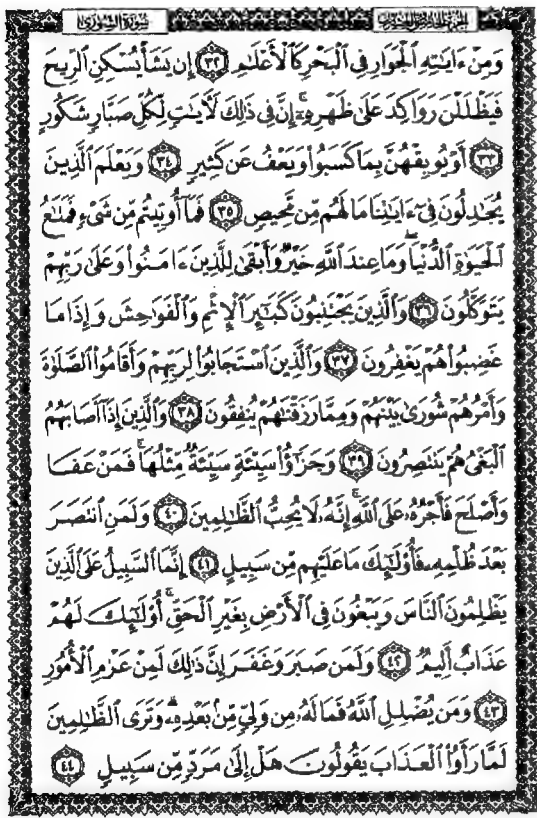 سُورَةُ الشُّورَىٰ
وَمِنْ ءَايَٰتِهِ ٱلْجَوَارِ فِى ٱلْبَحْرِ كَٱلْأَعْلَٰمِ ٣٢ إِن يَشَأْ يُسْكِنِ ٱلرِّيحَ
فَيَظْلَلْنَ رَوَاكِدَ عَلَىٰ ظَهْرِهِۦٓ ۚ إِنَّ فِى ذَٰلِكَ لَءَايَٰتٍ لِّكُلِّ صَبَّارٍ شَكُورٍ
٣٣ أَوْ يُوبِقْهُنَّ بِمَا كَسَبُوا۟ وَيَعْفُ عَن كَثِيرٍ ٣٤ وَيَعْلَمَ ٱلَّذِينَ
يُجَٰدِلُونَ فِىٓ ءَايَٰتِنَا مَا لَهُم مِّن مَّحِيصٍ ٣٥ فَمَآ أُوتِيتُم مِّن شَىْءٍ فَمَتَٰعُ
ٱلْحَيَوٰةِ ٱلدُّنْيَا ۖ وَمَا عِندَ ٱللَّهِ خَيْرٌ وَأَبْقَىٰ لِلَّذِينَ ءَامَنُوا۟ وَعَلَىٰ رَبِّهِمْ
يَتَوَكَّلُونَ ٣٦ وَٱلَّذِينَ يَجْتَنِبُونَ كَبَٰٓئِرَ ٱلْإِثْمِ وَٱلْفَوَٰحِشَ وَإِذَا مَا
غَضِبُوا۟ هُمْ يَغْفِرُونَ ٣٧ وَٱلَّذِينَ ٱسْتَجَابُوا۟ لِرَبِّهِمْ وَأَقَامُوا۟ ٱلصَّلَوٰةَ
وَأَمْرُهُمْ شُورَىٰ بَيْنَهُمْ وَمِمَّا رَزَقْنَٰهُمْ يُنفِقُونَ ٣٨ وَٱلَّذِينَ إِذَآ أَصَابَهُمُ
ٱلْبَغْىُ هُمْ يَنتَصِرُونَ ٣٩ وَجَزَٰٓؤُا۟ سَيِّئَةٍ سَيِّئَةٌ مِّثْلُهَا ۖ فَمَنْ عَفَا
وَأَصْلَحَ فَأَجْرُهُۥ عَلَى ٱللَّهِ ۚ إِنَّهُۥ لَا يُحِبُّ ٱلظَّٰلِمِينَ ٤٠ وَلَمَنِ ٱنتَصَرَ
بَعْدَ ظُلْمِهِۦ فَأُو۟لَٰٓئِكَ مَا عَلَيْهِم مِّن سَبِيلٍ ٤١ إِنَّمَا ٱلسَّبِيلُ عَلَى ٱلَّذِينَ
يَظْلِمُونَ ٱلنَّاسَ وَيَبْغُونَ فِى ٱلْأَرْضِ بِغَيْرِ ٱلْحَقِّ ۚ أُو۟لَٰٓئِكَ لَهُمْ
عَذَابٌ أَلِيمٌ ٤٢ وَلَمَن صَبَرَ وَغَفَرَ إِنَّ ذَٰلِكَ لَمِنْ عَزْمِ ٱلْأُمُورِ
٤٣ وَمَن يُضْلِلِ ٱللَّهُ فَمَا لَهُۥ مِن وَلِىٍّ مِّنۢ بَعْدِهِۦ ۗ وَتَرَى ٱلظَّٰلِمِينَ
لَمَّا رَأَوُا۟ ٱلْعَذَابَ يَقُولُونَ هَلْ إِلَىٰ مَرَدٍّ مِّن سَبِيلٍ ٤٤